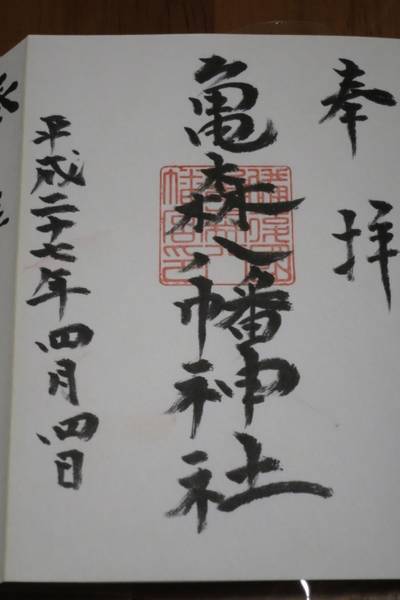 奉拝
亀森八幡神社
平成二十七年四月四日